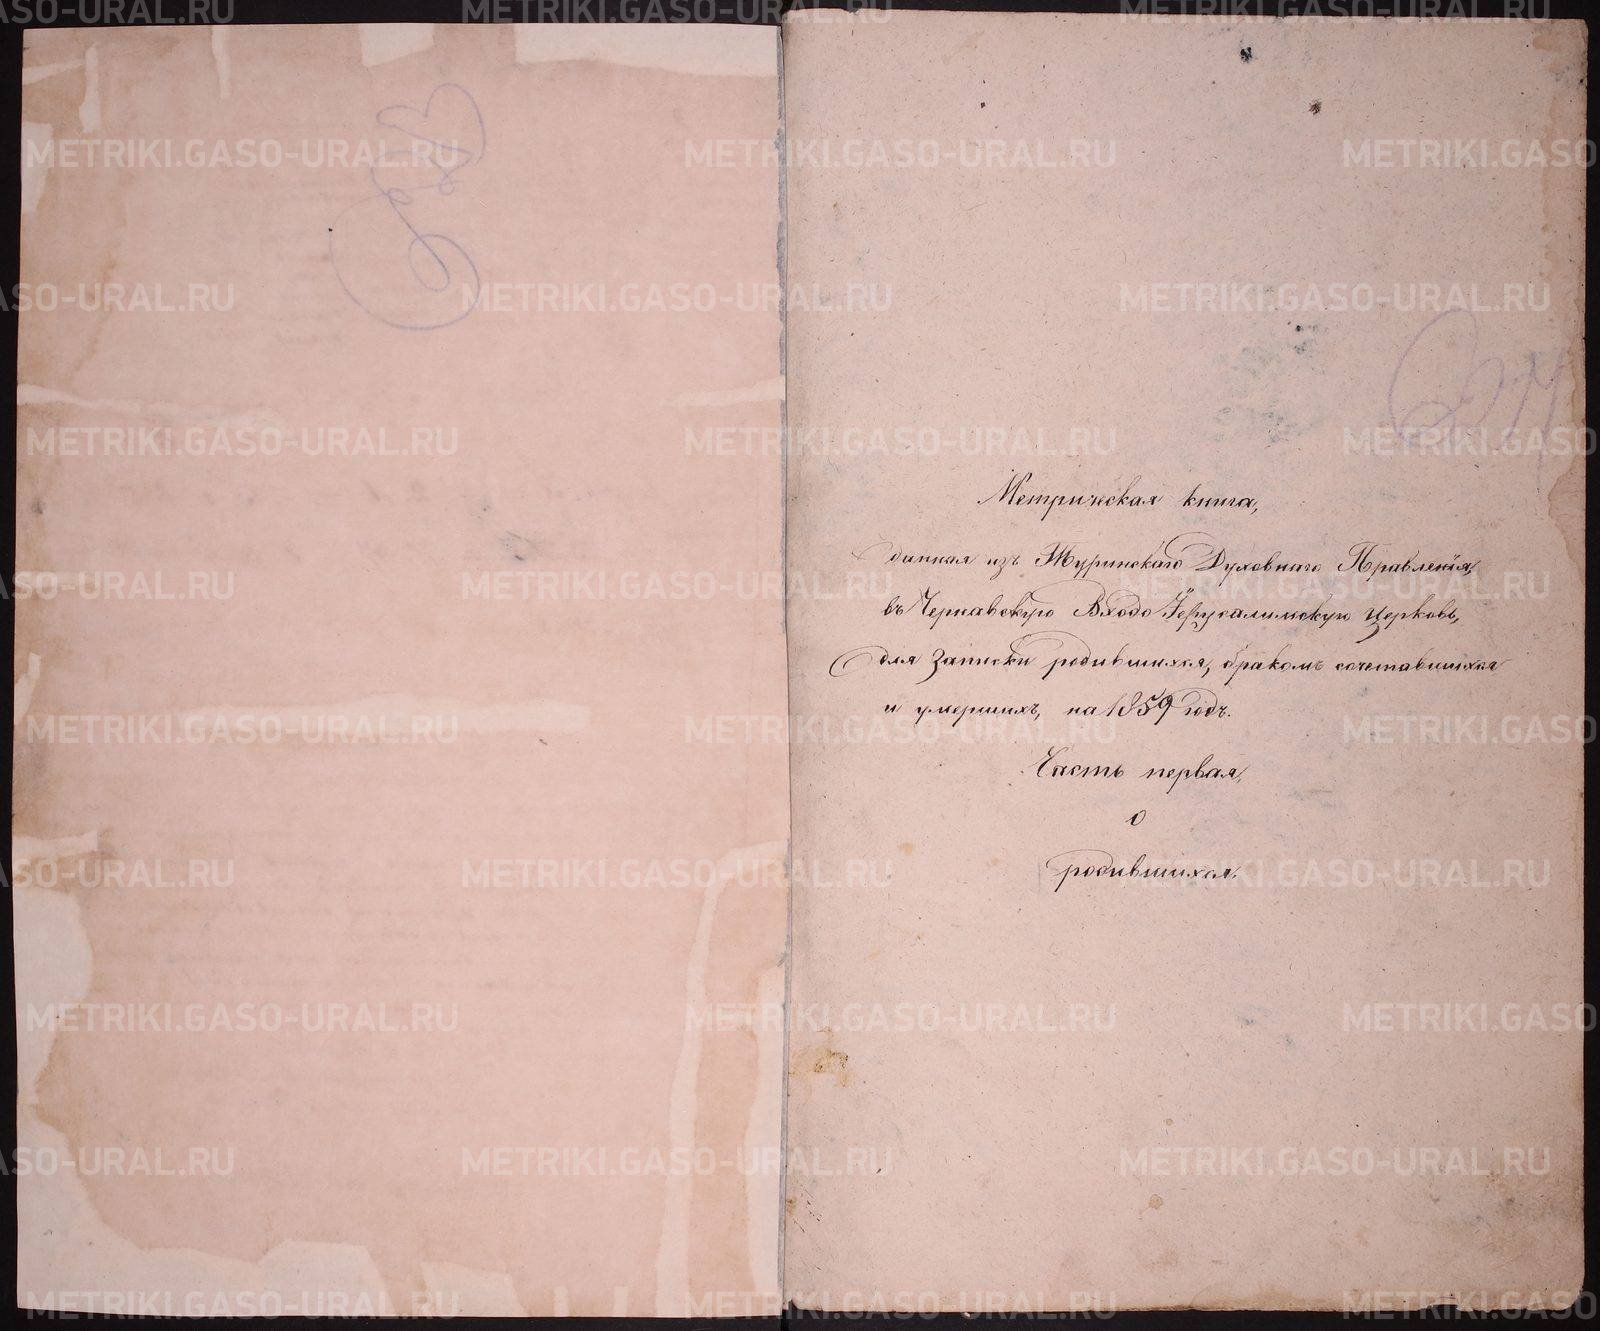 Метрическая книга,
данная изъ Туринскаго Духовнаго Правленія,
въ Чернавскую Входо Іерусалимскую церковь,
для записки родившихся, бракомъ сочетавшихся
и умершихъ, на 1859 годъ.
Часть первая,
о
родившихся.
METRIKI.GASO-URAL.RU